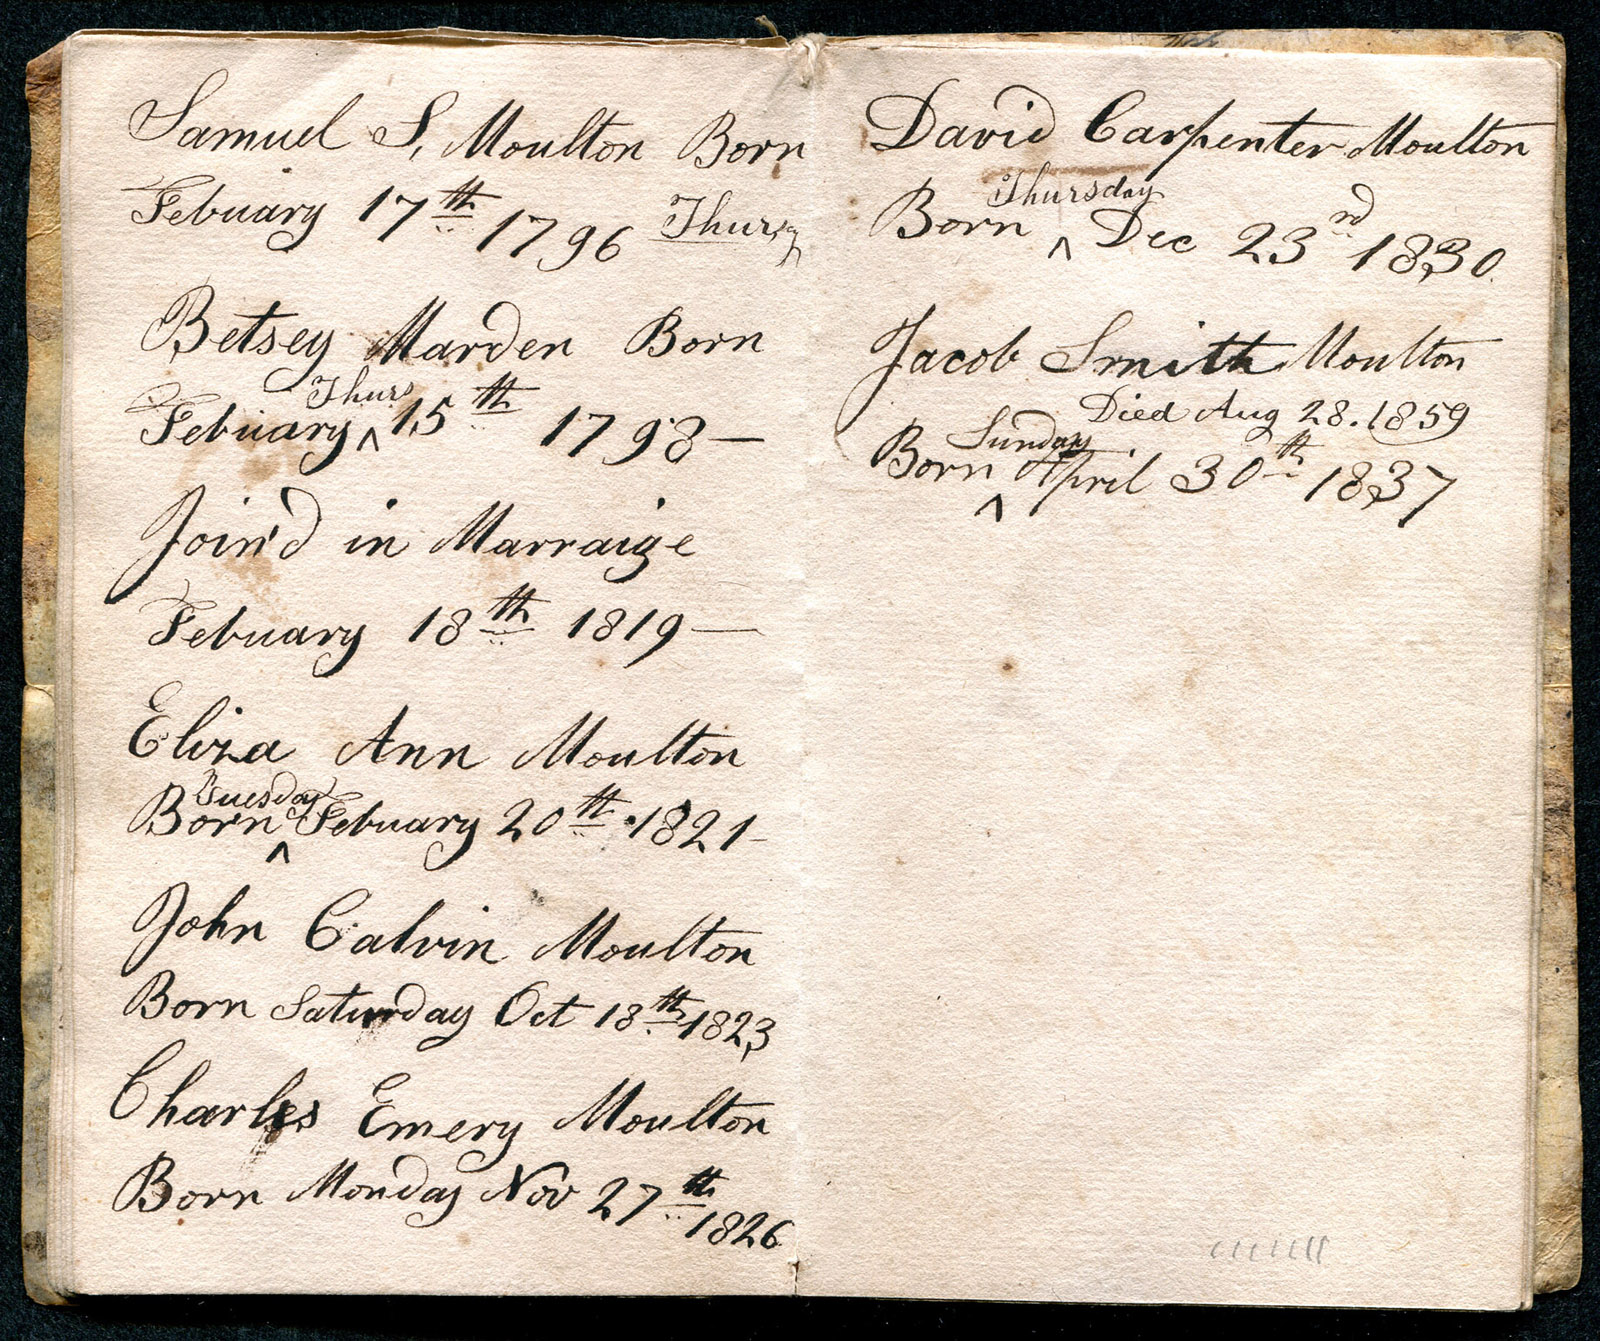 Samuel S, Moulton Born
Febuary 17th 1796 Thursy
Betsey Marden Born
Thurs
Febuary ^ 15th 1798 —
Join'd in Marraige
Febuary 18th 1819 —
Eliza Ann Moulton
Tuesday
Born ^ Febuary 20th 1821 -
John Calvin Moulton
Born Saturday Oct 18th 1823
Charles Emery Moulton
Born Monday Nov 27th
1826
David Carpenter Moulton
Thursday
Born ^ Dec 23rd 1830.
Jacob Smith Moulton
Died Aug 28. 1859
Sunday
Born ^ April 30th 1837